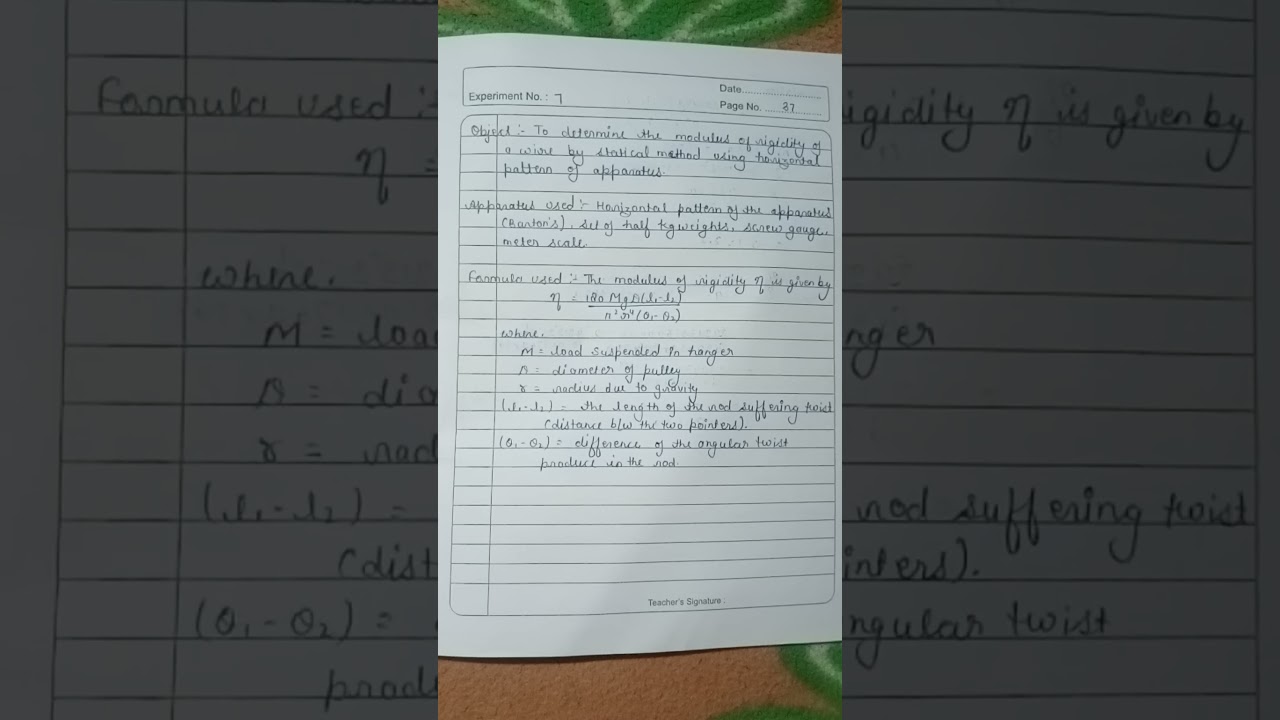 Experiment No. : 7
Date
Page No. 37
Object :- To determine the modulus of rigidity of
a wire by statical method using horizontal
pattern of apparatus.
Apparatus used :- Horizontal pattern of the apparatus
(Barton's), set of half kg weights, screw gauge,
meter scale.
Formula used :- The modulus of rigidity η is given by
η = 180 MgD(l₁-l₂)
π²r⁴(θ₁-θ₂)
where,
M = load suspended in hanger
D = diameter of pulley
r = radius due to gravity
(l₁-l₂) = the length of the rod suffering twist
(distance b/w the two pointers).
(θ₁-θ₂) = difference of the angular twist
produce in the rod.
Teacher's Signature :
Formula used :-
igidity η is given by
η =
where,
M = load
nger
D = dia
r = rad
(l₁-l₂) =
rod suffering twist
(dist
inters).
(θ₁-θ₂) =
ngular twist
produ